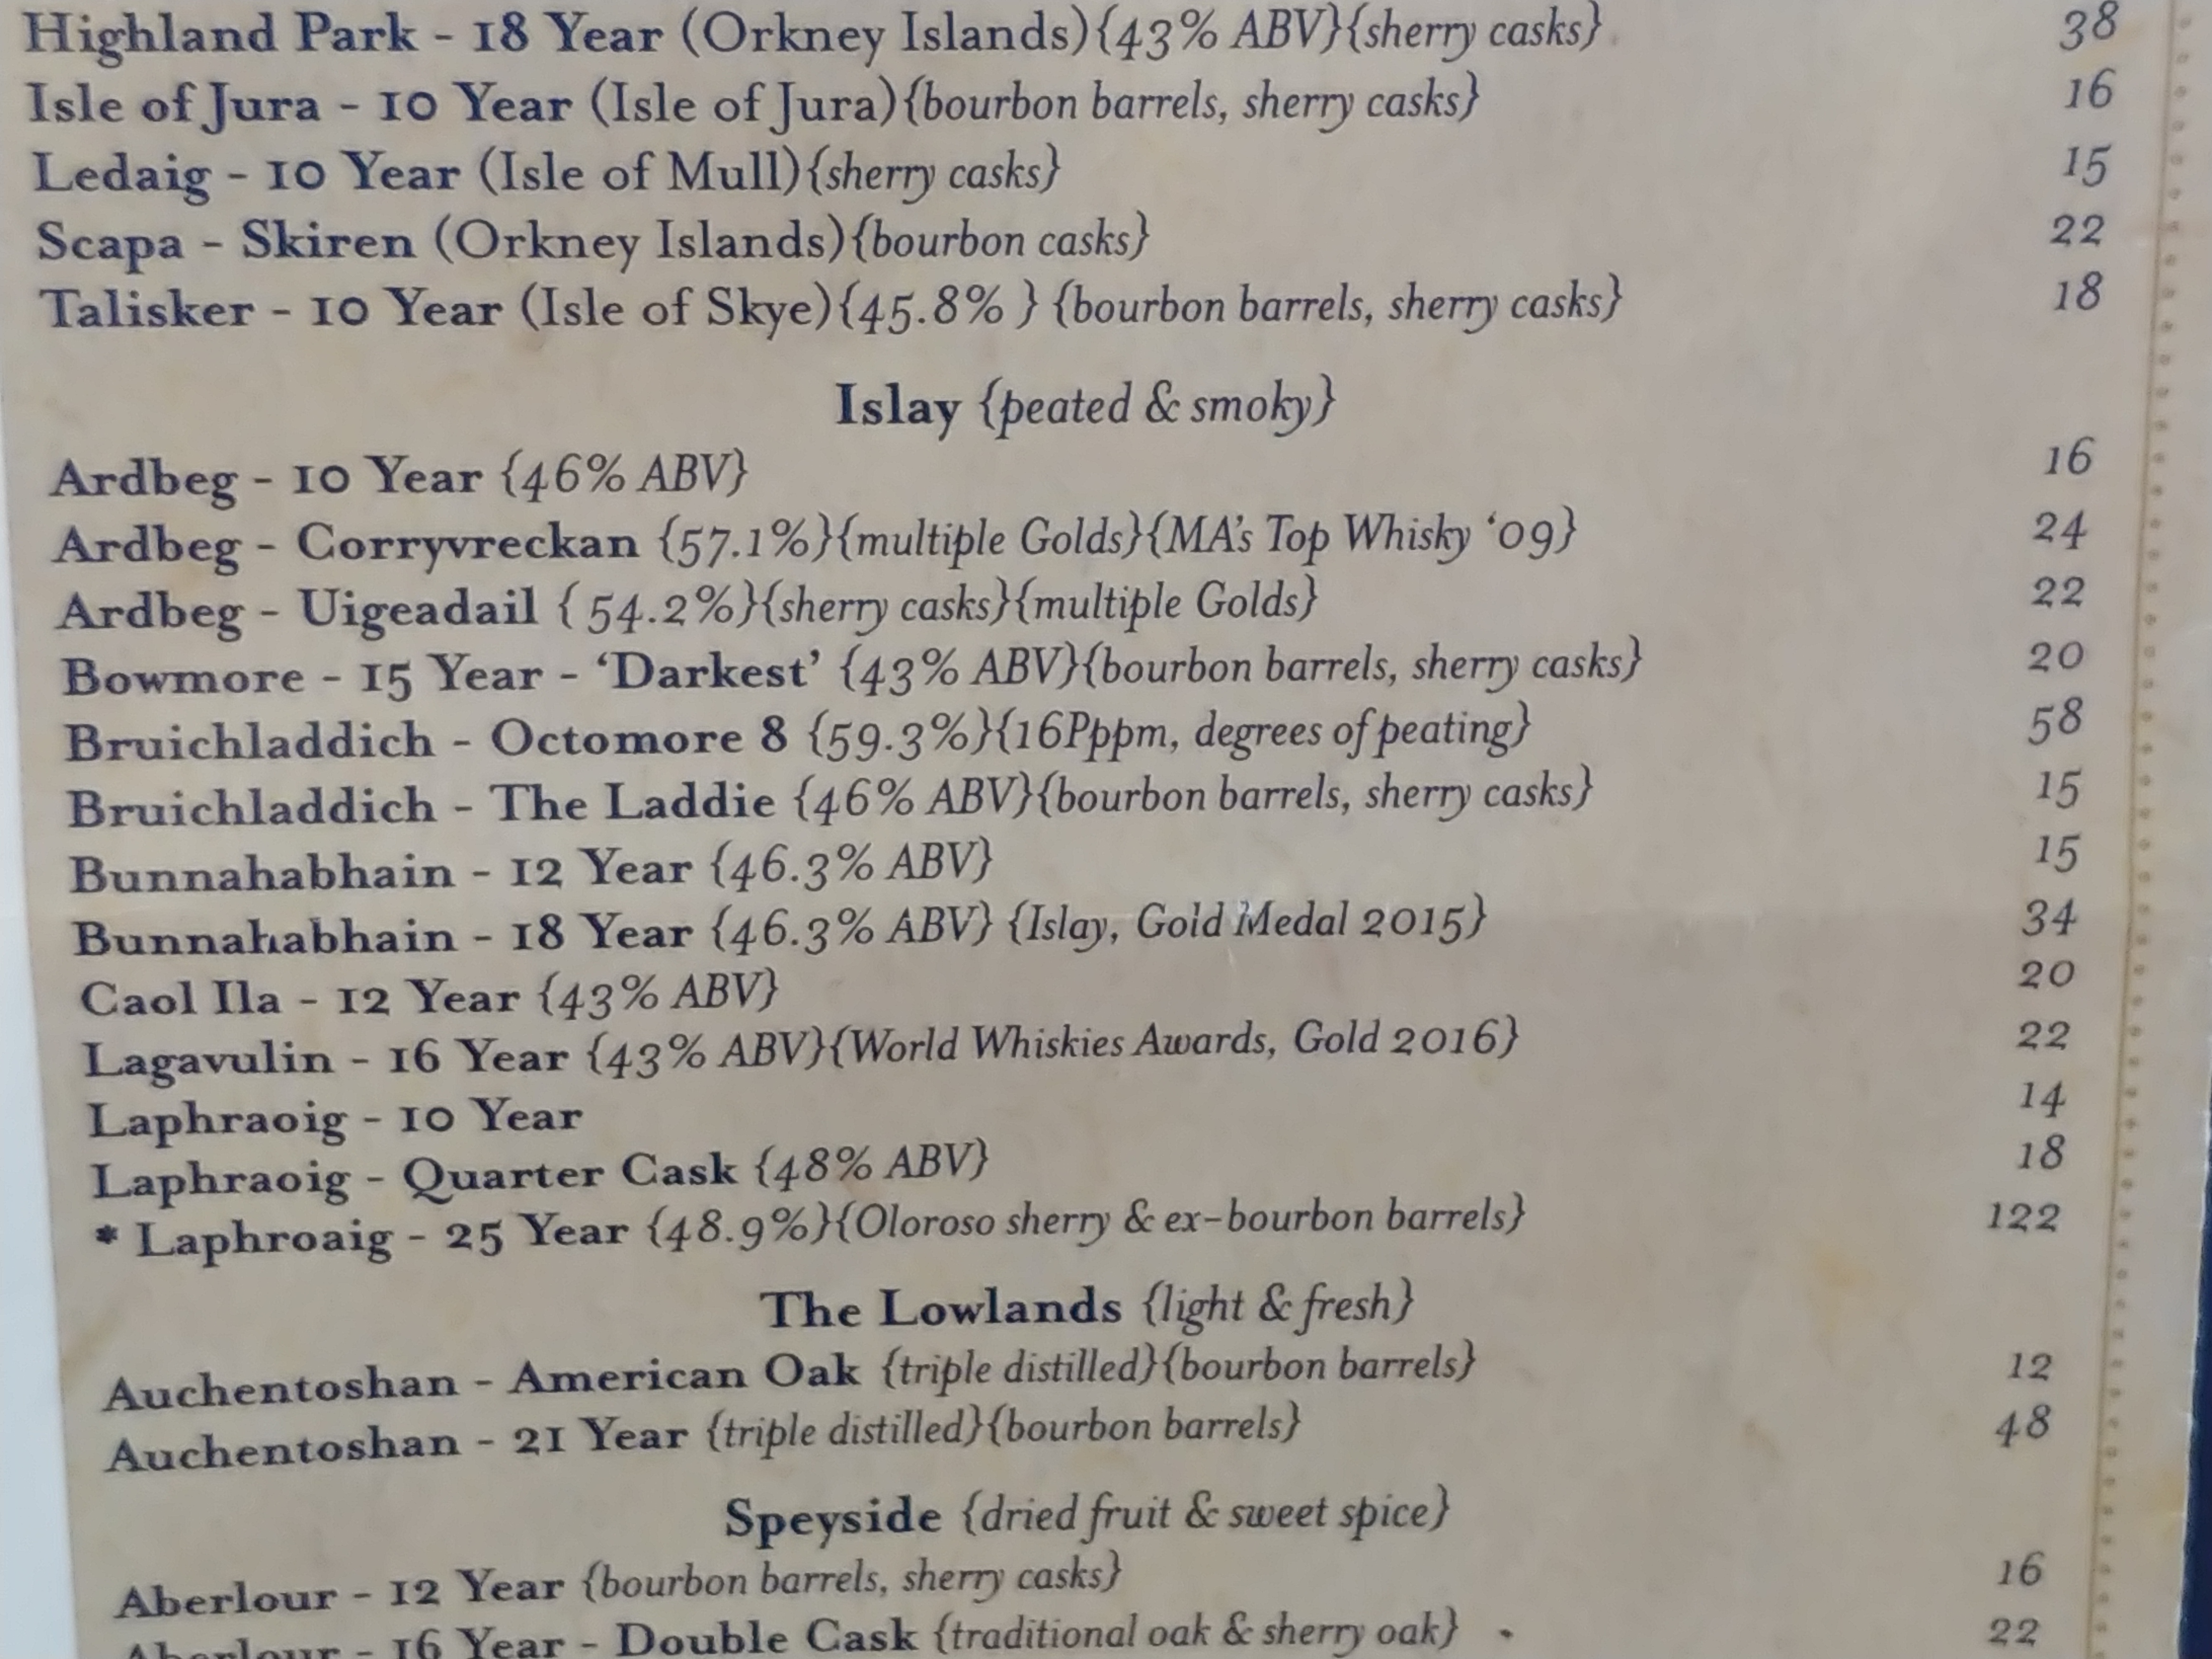 Highland Park - 18 Year (Orkney Islands){43% ABV}{sherry casks} 38
Isle of Jura - 10 Year (Isle of Jura){bourbon barrels, sherry casks} 16
Ledaig - 10 Year (Isle of Mull){sherry casks} 15
Scapa - Skiren (Orkney Islands){bourbon casks} 22
Talisker - 10 Year (Isle of Skye){45.8% } {bourbon barrels, sherry casks} 18
Islay {peated & smoky}
Ardbeg - 10 Year {46% ABV} 16
Ardbeg - Corryvreckan {57.1%}{multiple Golds}{MA's Top Whisky ‘09} 24
Ardbeg - Uigeadail { 54.2%}{sherry casks}{multiple Golds} 22
Bowmore - 15 Year - ‘Darkest’ {43% ABV}{bourbon barrels, sherry casks} 20
Bruichladdich - Octomore 8 {59.3%}{16Pppm, degrees of peating} 58
Bruichladdich - The Laddie {46% ABV}{bourbon barrels, sherry casks} 15
Bunnahabhain - 12 Year {46.3% ABV} 15
Bunnahabhain - 18 Year {46.3% ABV} {Islay, Gold Medal 2015} 34
Caol Ila - 12 Year {43% ABV} 20
Lagavulin - 16 Year {43% ABV}{World Whiskies Awards, Gold 2016} 22
Laphraoig - 10 Year 14
Laphraoig - Quarter Cask {48% ABV} 18
* Laphroaig - 25 Year {48.9%}{Oloroso sherry & ex-bourbon barrels} 122
The Lowlands {light & fresh}
Auchentoshan - American Oak {triple distilled}{bourbon barrels} 12
Auchentoshan - 21 Year {triple distilled}{bourbon barrels} 48
Speyside {dried fruit & sweet spice}
Aberlour - 12 Year {bourbon barrels, sherry casks} 16
Aberlour - 16 Year - Double Cask {traditional oak & sherry oak} 22